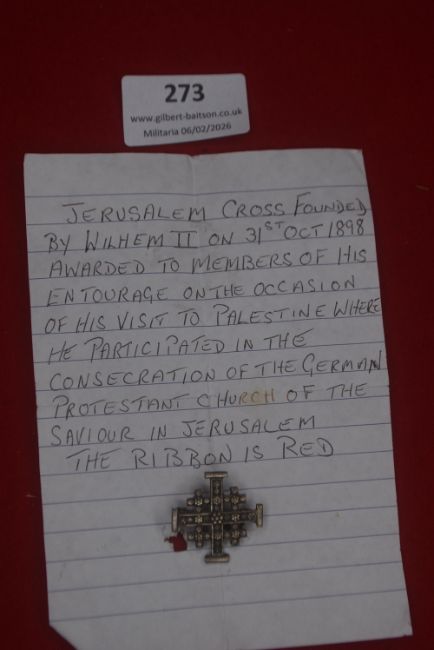 273
www.gilbert-baitson.co.uk
Militaria 06/02/2026
JERUSALEM CROSS FOUNDED
BY WILHEM II ON 31ST OCT 1898
AWARDED TO MEMBERS OF HIS
ENTOURAGE ON THE OCCASION
OF HIS VISIT TO PALESTINE WHERE
HE PARTICIPATED IN THE
CONSECRATION OF THE GERMAN
PROTESTANT CHURCH OF THE
SAVIOUR IN JERUSALEM
THE RIBBON IS RED